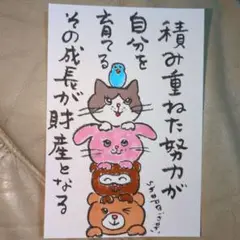 積み重ねた努力が
自分を
育てる
その成長が財産となる